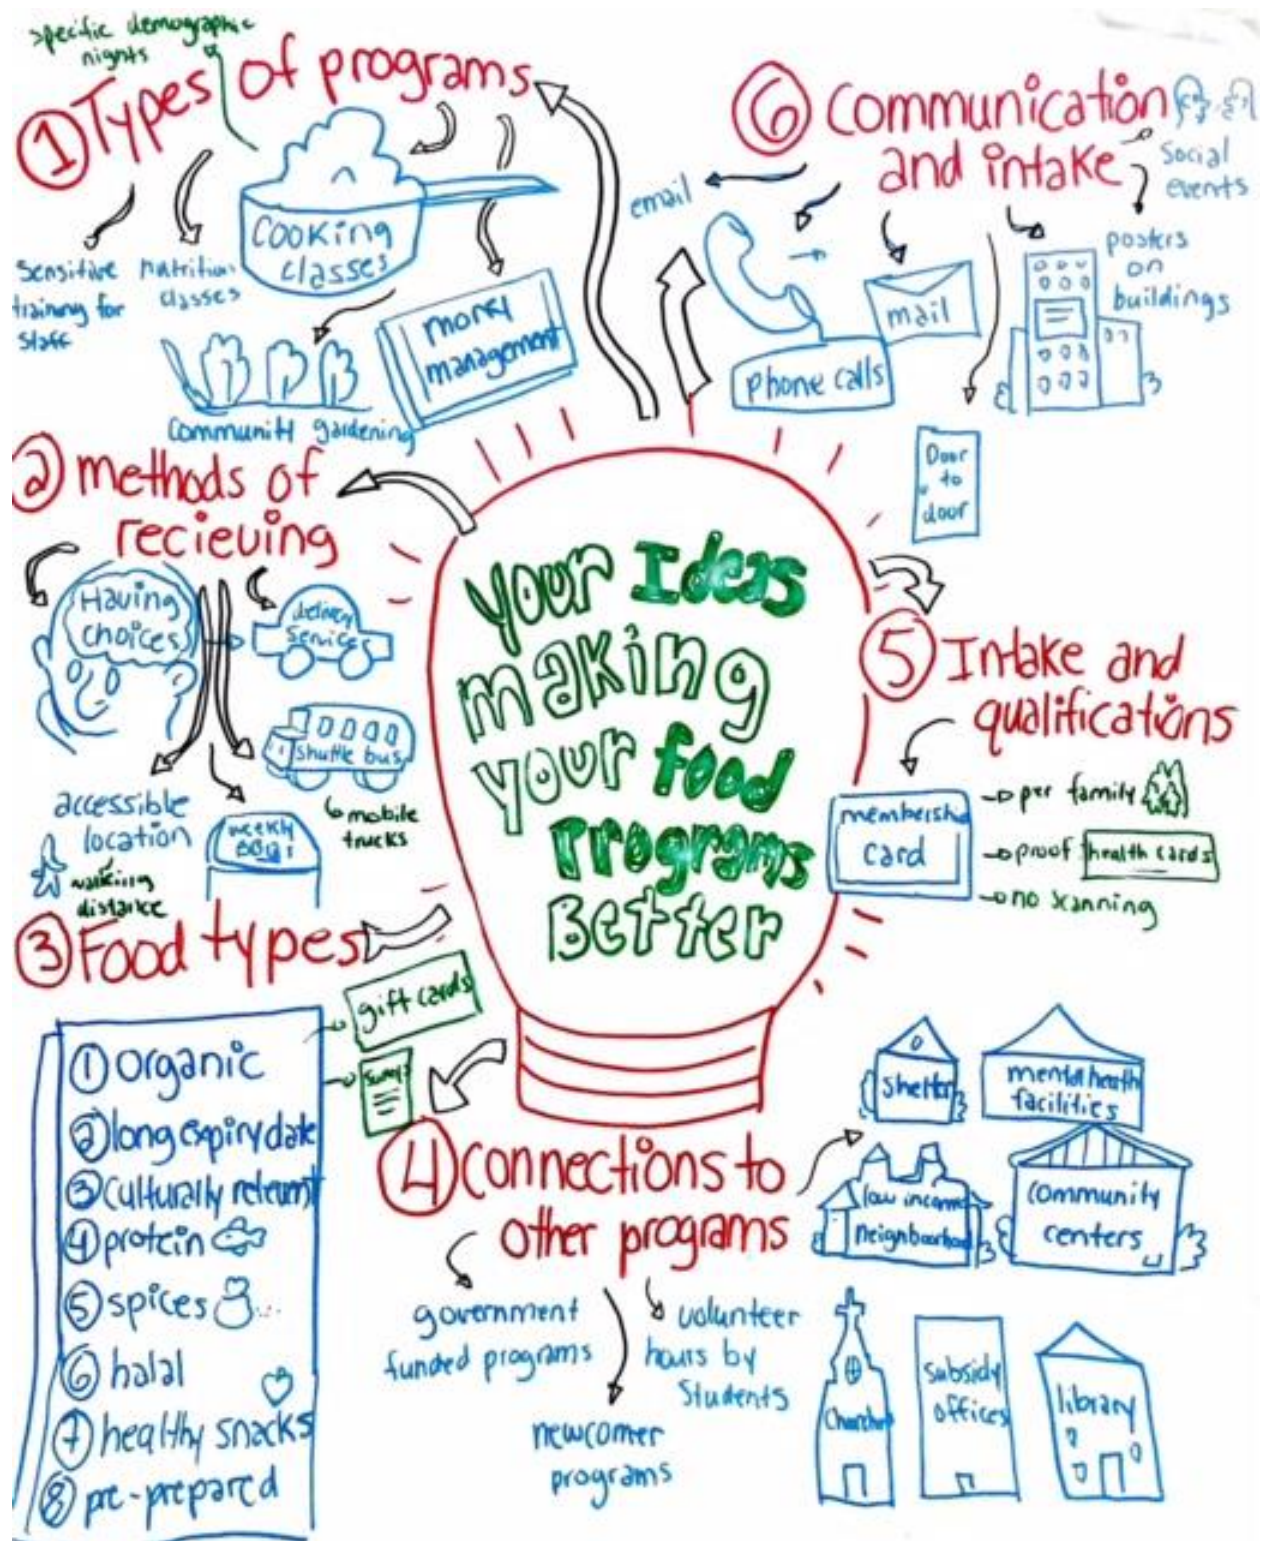 specific demographic
nights
① Types of programs
Sensitive
training for
staff
nutrition
classes
COOKING
classes
money
management
community gardening
② methods of
recieving
Having
choices
delivery
service
shuttle bus
mobile
trucks
accessible
location
walking
distance
weekly
③ Food types
gift cards
① organic
② long expiry date
③ culturally relevant
④ protein
⑤ spices
⑥ halal
⑦ healthy snacks
⑧ pre-prepared
Your Ideas
making
your food
Programs
Better
④ Connections to
other programs
government
funded programs
newcomer
programs
volunteer
hours by
Students
Shelter
mental health
facilities
low income
neighbourhood
community
centers
Church
subsidy
offices
library
⑤ Intake and
qualifications
membership
card
per family
proof health cards
no scanning
⑥ Communication
and intake
Social
events
email
phone calls
mail
posters
on
buildings
Door
to
door